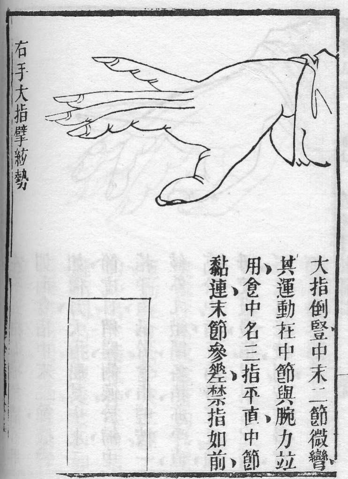 右手大指擘絃勢
大指倒豎中末二節微彎
其運動在中節與腕力並
用食中名三指平直中節
黏連末節參差禁指如前